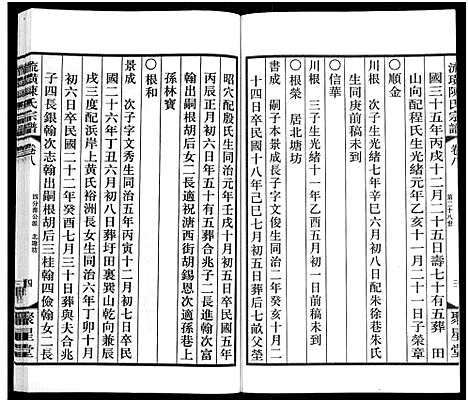 流璜陳氏宗譜 卷八 第二十八世 三 聚星堂
國三十五年丙戌十二月二十五日壽七十有五葬 田
山向配程氏生光緒元年乙亥十一月二十一日子榮章
○順金
川根 三子生光緒十一年乙酉五月初八日配朱徐巷朱氏
生同庚前稿未到
○信華
川根 三子生光緒十一年乙酉五月初一日前稿未到
○根榮 居北塘坊
書成 嗣子本景成長子字文俊生同治二年癸亥十一月
十四日卒民國十八年己巳七月初五日壽六十有七葬父塋
昭穴配殷氏生同治元年壬戌十月初五日卒民國五年
丙辰正月初三日年五十有五葬合兆子二長進翰次富
翰出嗣根胡后女二長適祝溏西街胡錫恩次適孫巷上
孫林寶
○根和
景成 次子字文秀生同治六年丁卯十二月初七日卒民
國二十六年丁丑六月初八日葬圩田裏巽山乾向兼辰
戌三度配浜岸上黃氏裕洲長女生同治六年丁卯十月
初六日卒民國二十二年癸酉七月三十日葬與夫合兆
子四長銀翰次志翰出嗣根胡后三桂翰四儉翰女二長
流璜陳氏宗譜 卷八 四分彥公派 北塘坊 四 聚星堂